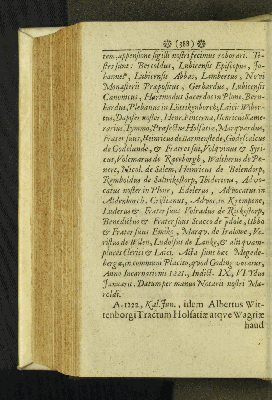 (388)
tem, appensione sigilli nostri fecimus roborari. Te-
stes sunt: Bertoldus, Lubicensis Episcopus, Jo-
hannes, Lubicensis Abbas, Lambertus, Novi
Monasterii Præpositus, Gerhardus, Lubicensis
Canonicus, Hartmodus Sacerdos in Plone, Bern-
hardus, Plebanus in Lüttekenborch, Laici: Wilhe-
rus, Dapifer noster, Henr. Pincerna, Henricus Kame-
rarius, Tymmo, Præfectus Holsatiæ, Marquardus,
Frater suus, Henricus de Barmestede, Godescalcus
de Godelande, & Fratres sui, Volqvinus & Syri-
cus, Volcmarus de Raceborgh, Waltherus de Pe-
nere, Nicol. de Salem, Heinricus de Talendorp,
Remboldus de Salrickestorp, Thidericus, Advo-
catus noster in Plone, Edelerus, Advocatus in
Aldenburch, Cristianus, Advoc. in Krempene,
Luderus & Frater suus Volradus de Rickestorp,
Benedictus & Frater suus Scacco de ubbo
& Frater suus Emike, Marqv. de Iralowe, Ve-
restus de Wilen, Ludolfus de Lanke, & alii quam-
plures Clerici & Laici. Acta sunt hæc Magede-
bergæ, in communi Placito, quod Goding vocatur,
Anno Incarnationis 1221. Indict. IX, VI Idus
Januarii. Datum per manus Notarii nostri Ma-
roldi.
A. 1222. Kal. Jun., idem Albertus Wit-
tenborgi Tractum Holsatiæ atqve Wagriæ
haud